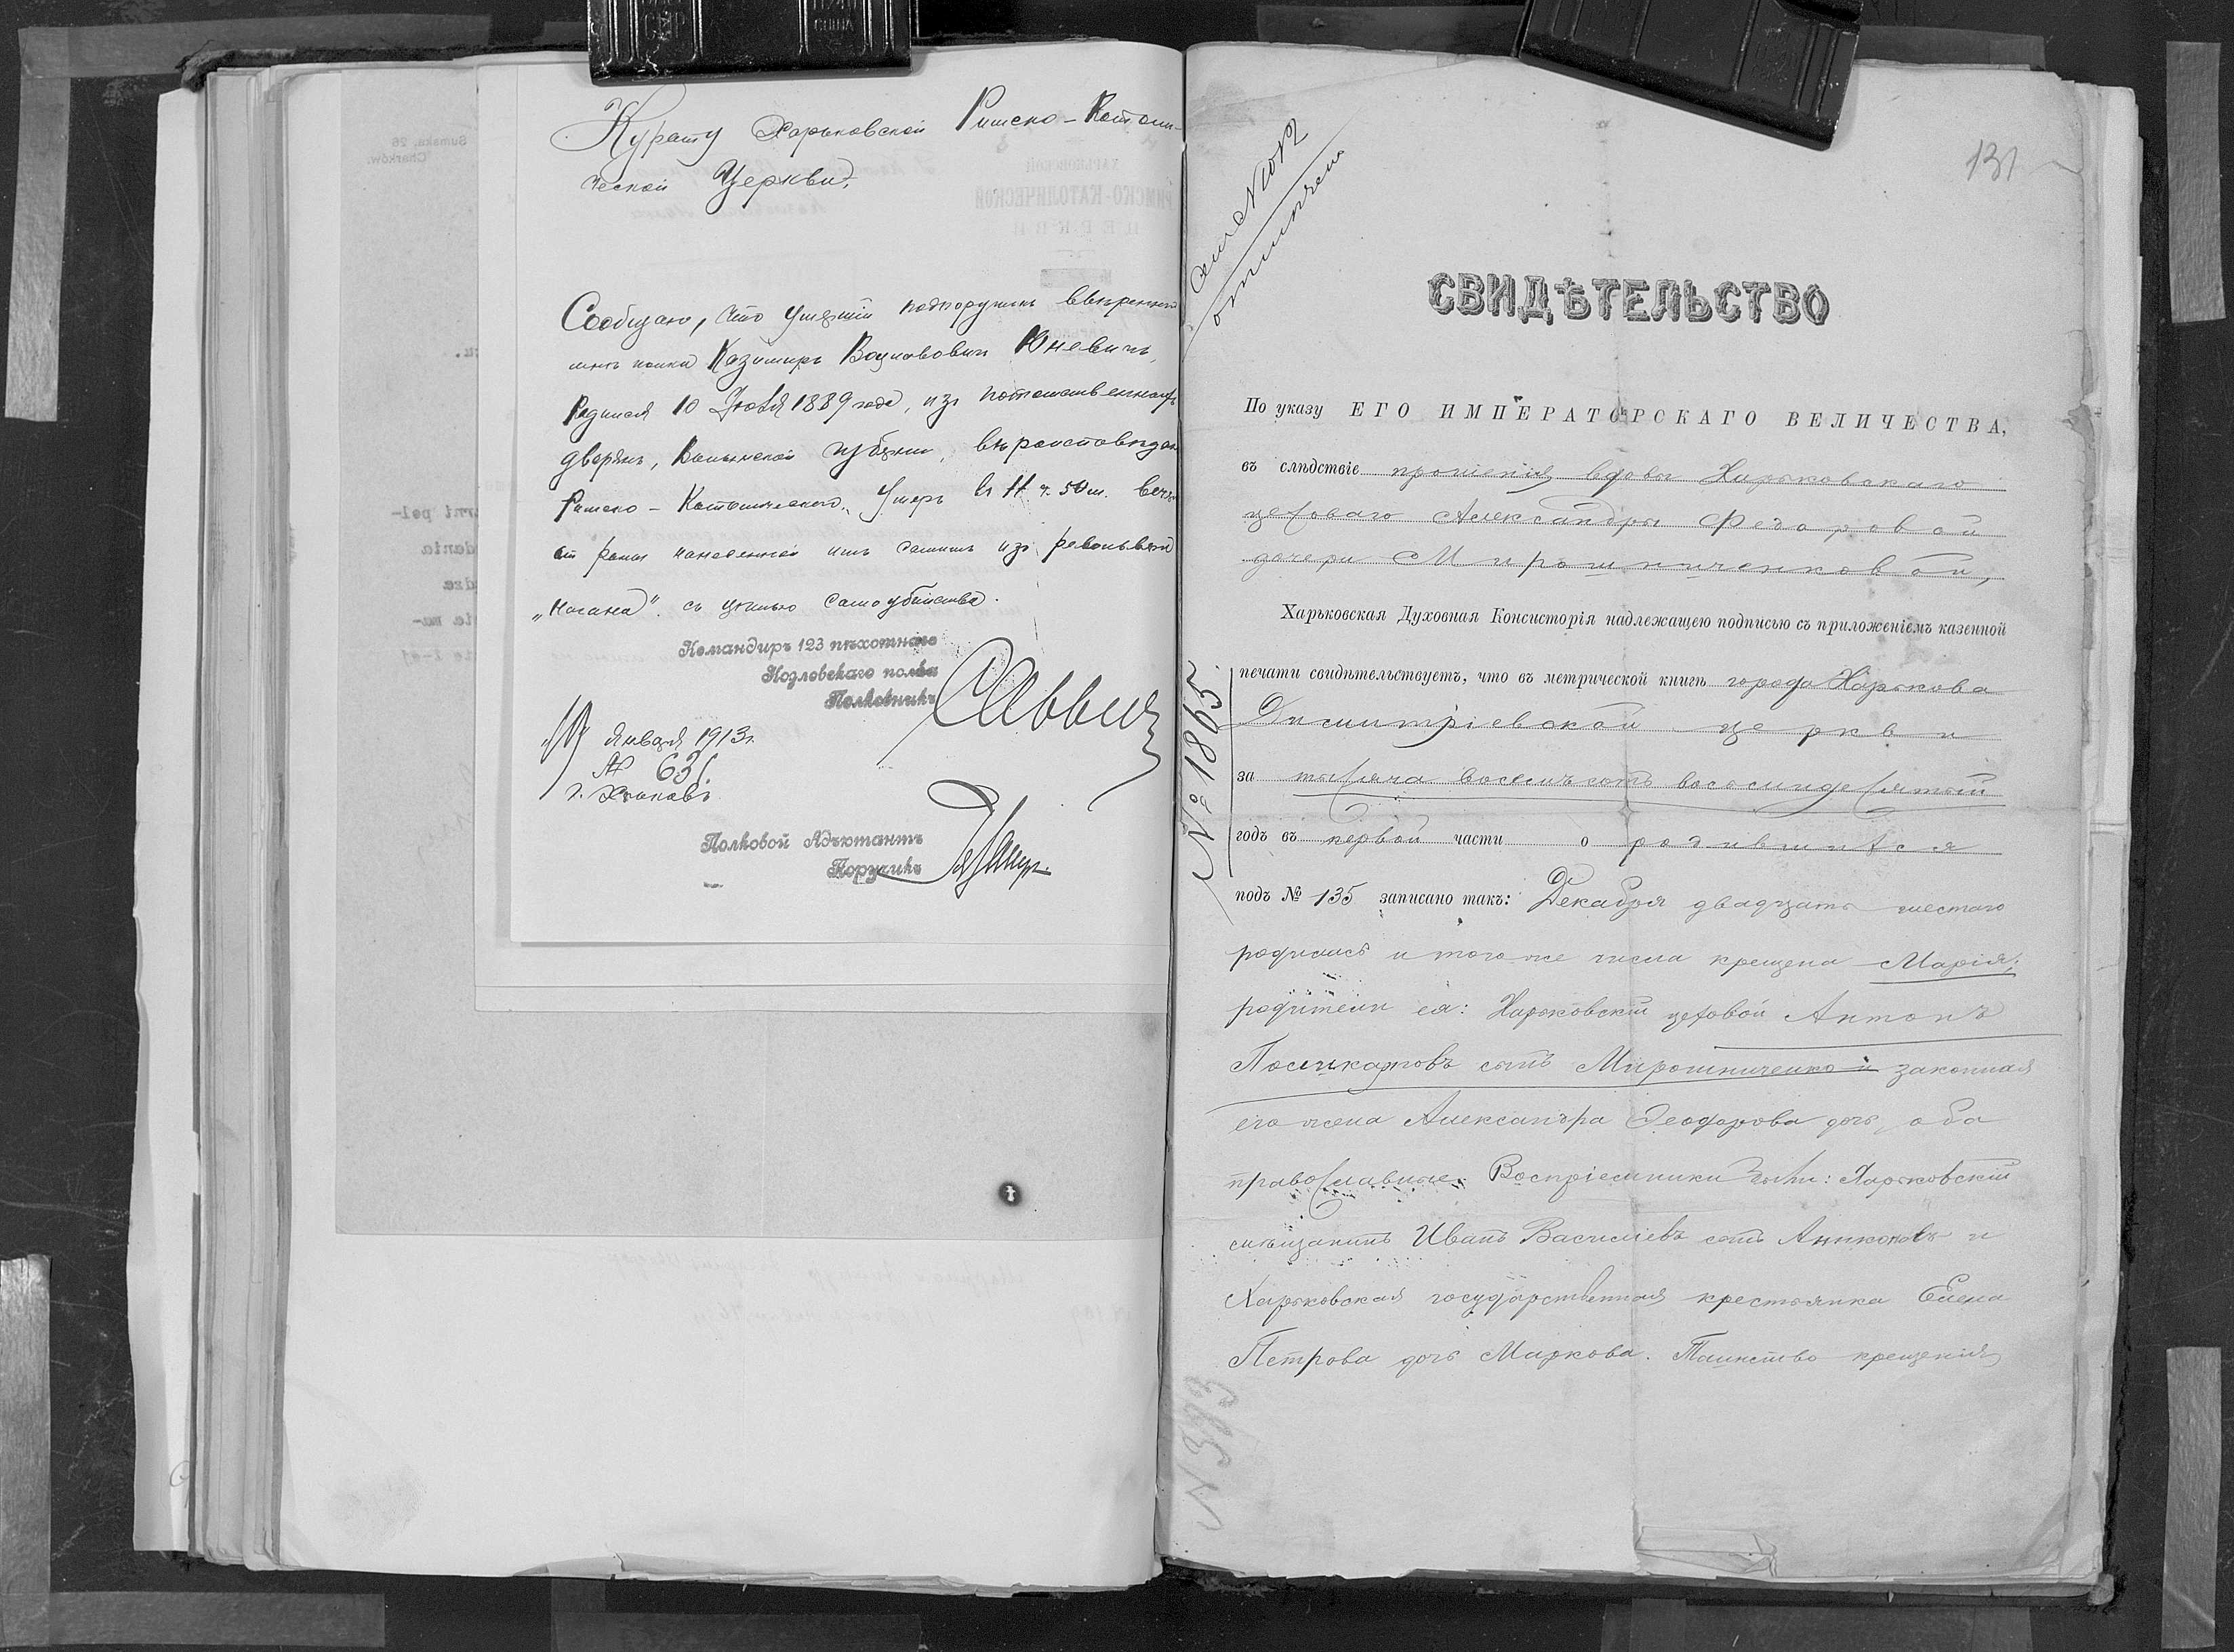 Курату Харьковской Римско-Католи-
ческой Церкви.
Сообщаю, что умершій подпоручикъ ввѣреннаго
мнѣ полка Казимиръ Вацлавовичъ Юневичъ,
родился 10 Іюля 1889 года, изъ потомственныхъ
дворянъ, Волынской губерніи, вѣроисповѣдан
Римско-Католическаго. Умеръ въ 11 ч. 50 м. веч
отъ раны нанесенной имъ самимъ изъ револьвера
„Нагана" съ цѣлью самоубійства.
Командиръ 123 пѣхотнаго
Козловскаго полка
Полковникъ
Января 1913 г.
№ 631.
г. Харьковъ
Полковой Адъютантъ
Поручикъ
131
СВИДѢТЕЛЬСТВО
По указу ЕГО ИМПЕРАТОРСКАГО ВЕЛИЧЕСТВА,
въ слѣдствіе прошенія вдовы Харьковскаго
цеховаго Александры Федоровой
дочери Мирошниченковой,
Харьковская Духовная Консисторія надлежащею подписью съ приложеніемъ казенной
печати свидѣтельствуетъ, что въ метрической книгѣ города Харькова
Димитріевской церкви
за тысяча восемьсотъ восьмидесятый
годъ въ первой части о родившихся
подъ № 135 записано такъ: Декабря двадцать шестаго
родилась и того же числа крещена Марія;
родители ея: Харьковскій цеховой Антонъ
Поликарповъ сынъ Мирошниченко и законная
его жена Александра Ѳеодорова дочь, оба
православные. Воспріемники были: Харьковскій
мѣщанинъ Иванъ Василіевъ сынъ Аниконовъ и
Харьковская государственная крестьянка Елена
Петрова дочь Маркова. Таинство крещенія
№ 1865.
№ 383